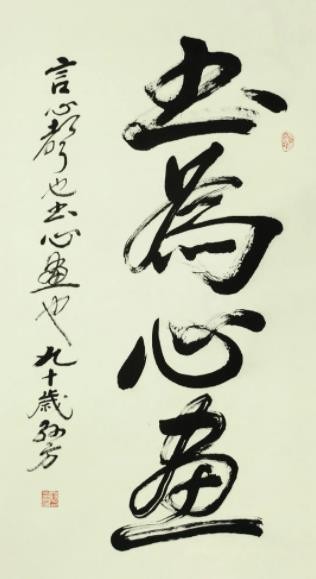 书為心畫
言心聲也书心畫也 九十歲